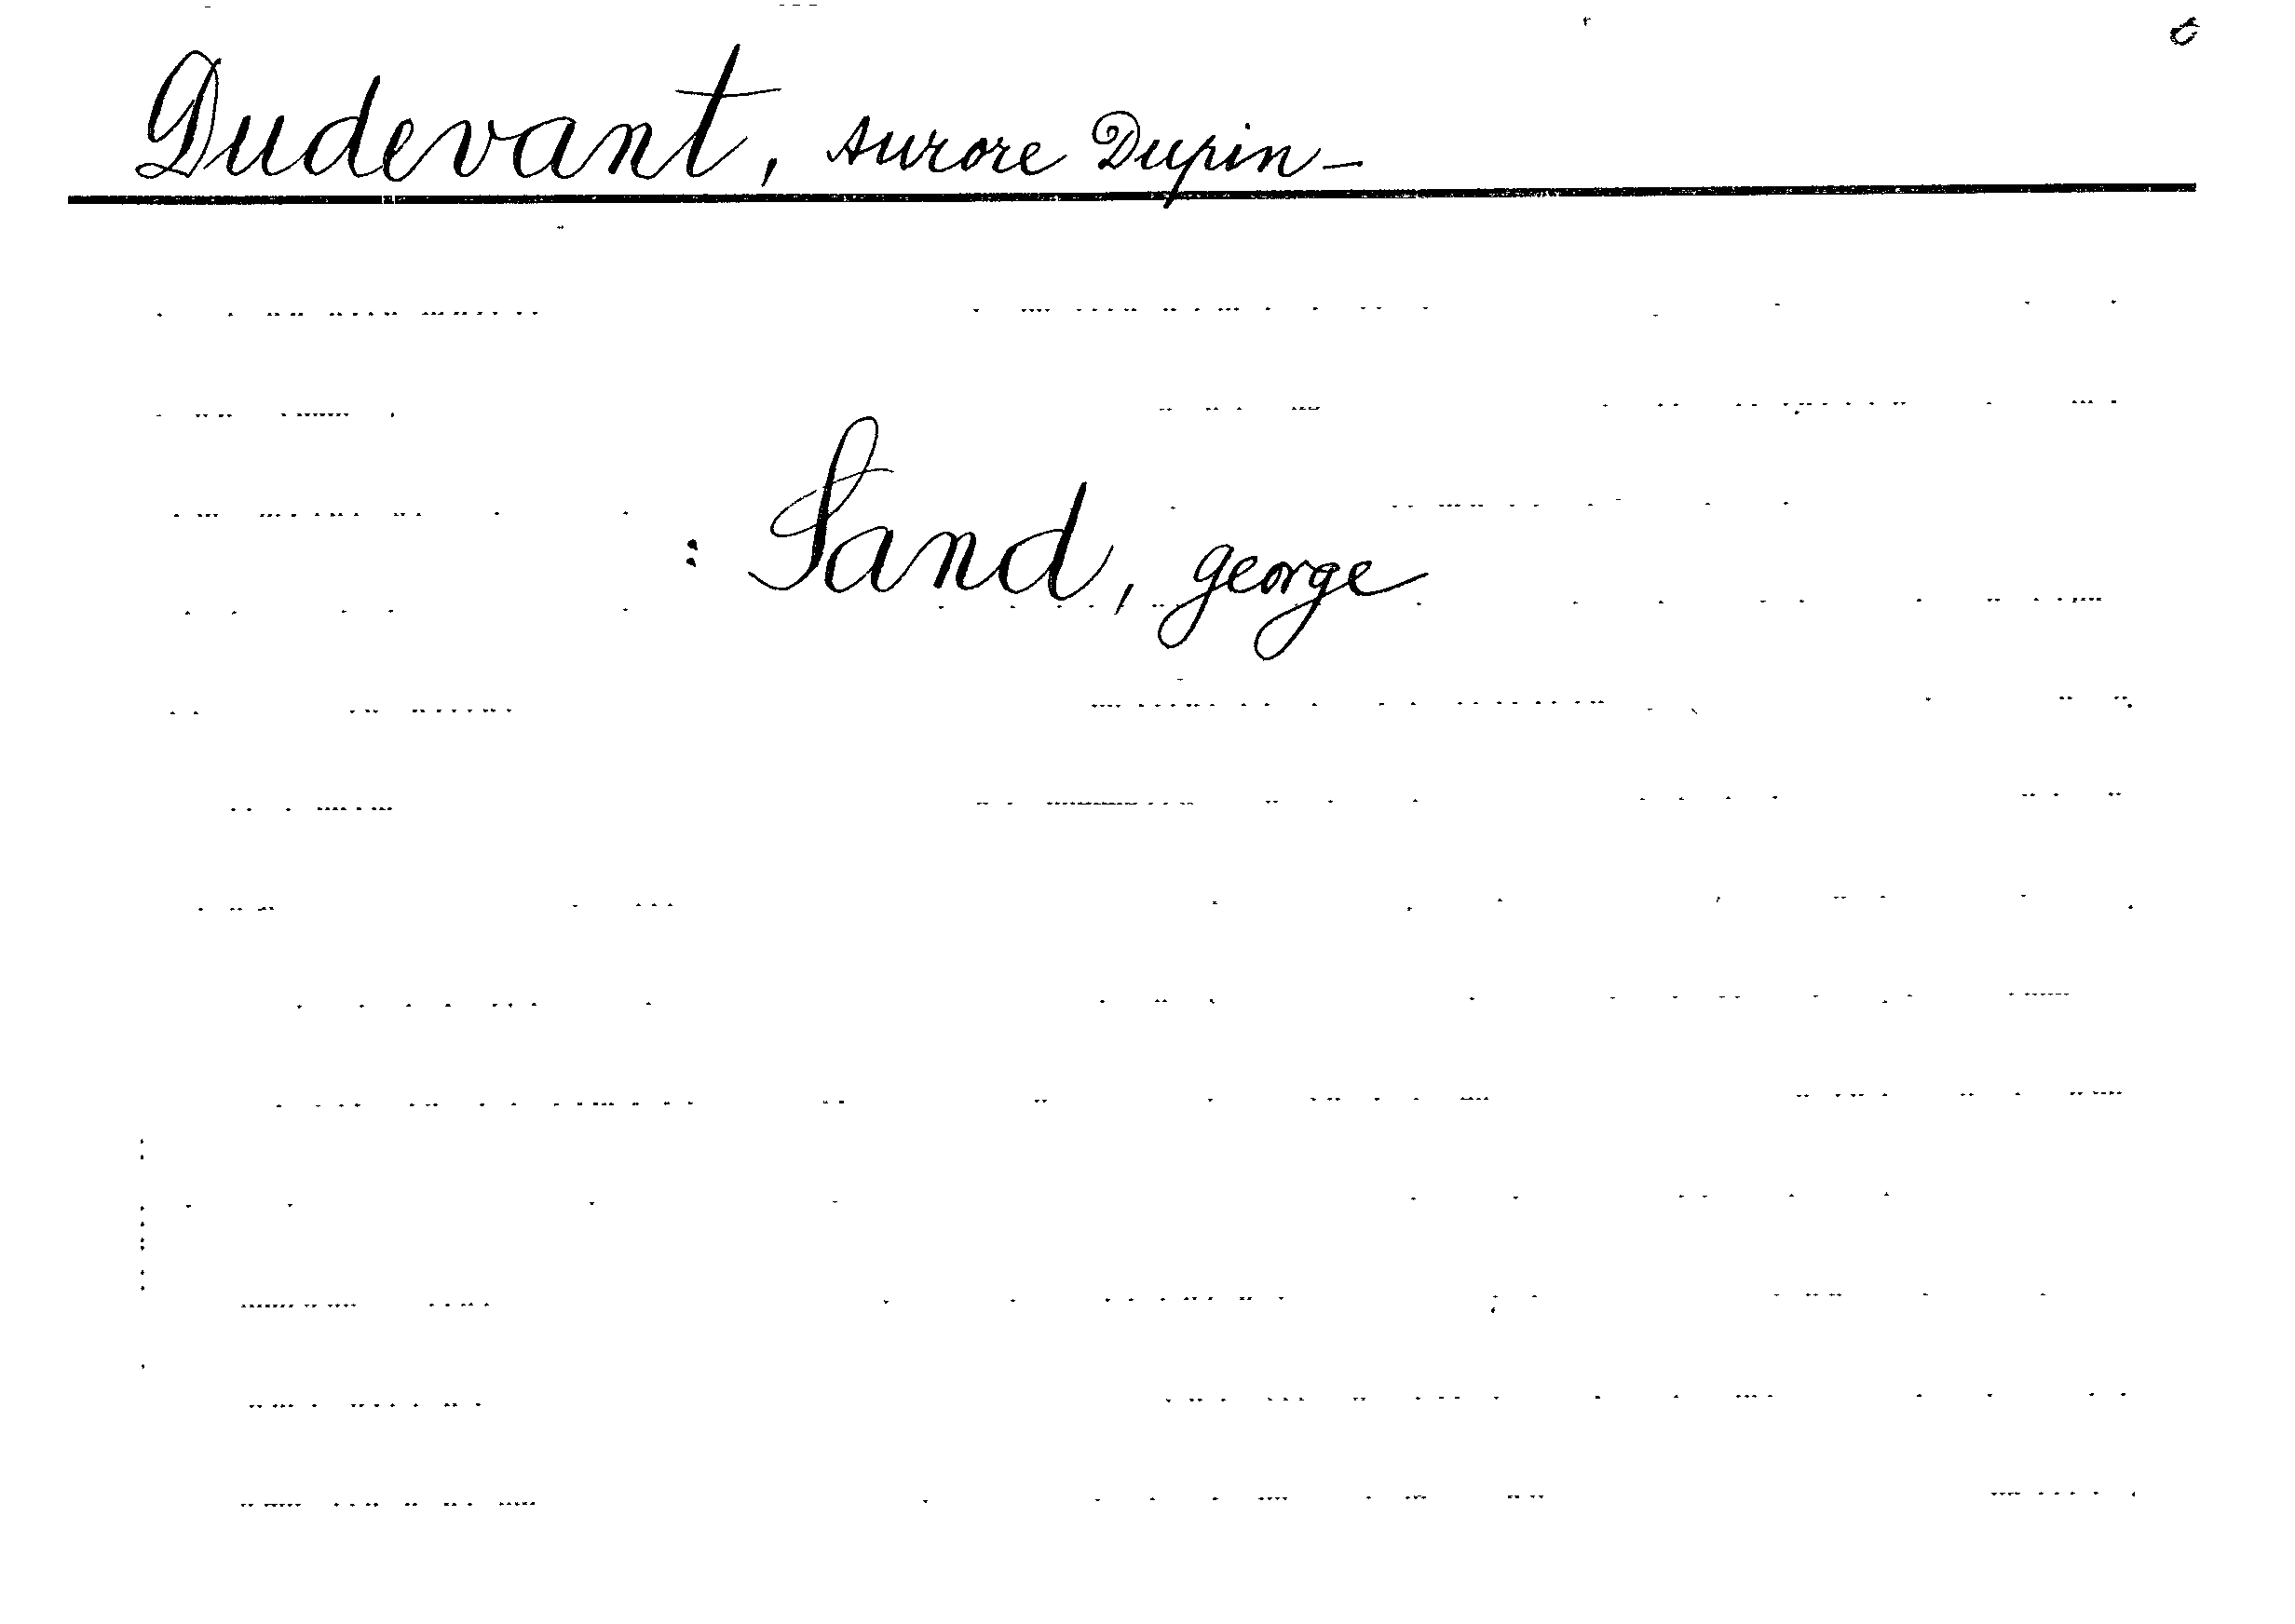 Dudevant, Aurore Dupin-
: Sand, george